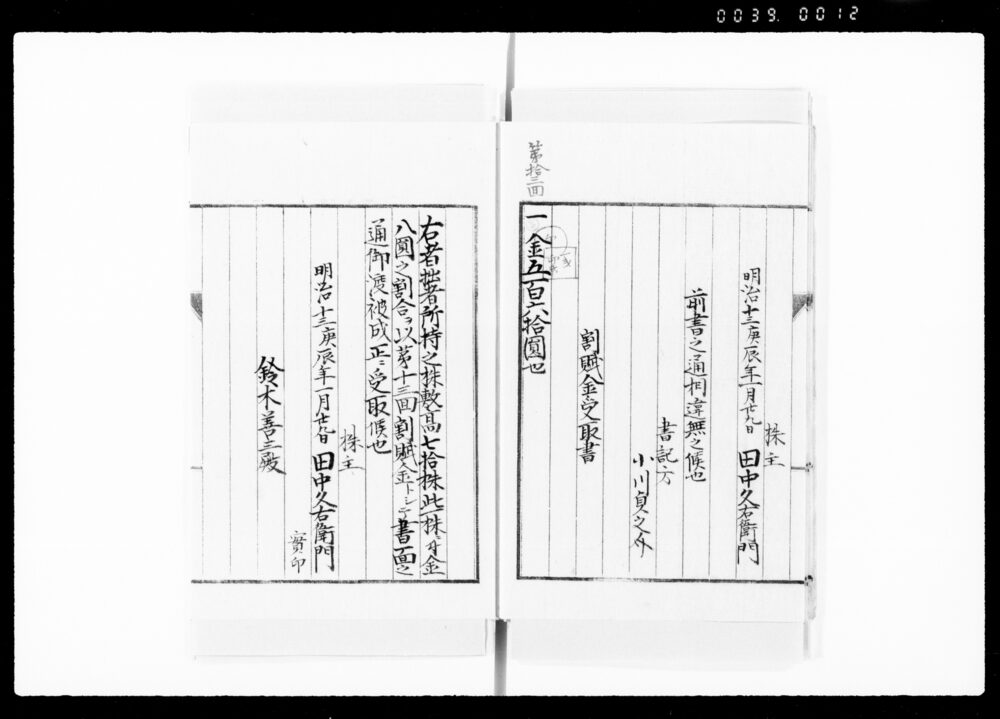 0039.0012
株主
明治十三庚辰年一月廿九日 田中久右衛門
前書之通相違無之候也
書記方
小川貞之
割賦金受取書
第拾三回
一金五百六拾圓也
右者拙者所持之株敷高七拾株此一株ニ付金
八圓之割合ヲ以第十三回割賦金トシテ書面之
通御渡被成正ニ受取候也
株主
明治十三庚辰年一月廿九日 田中久右衛門
實印
鈴木善三殿